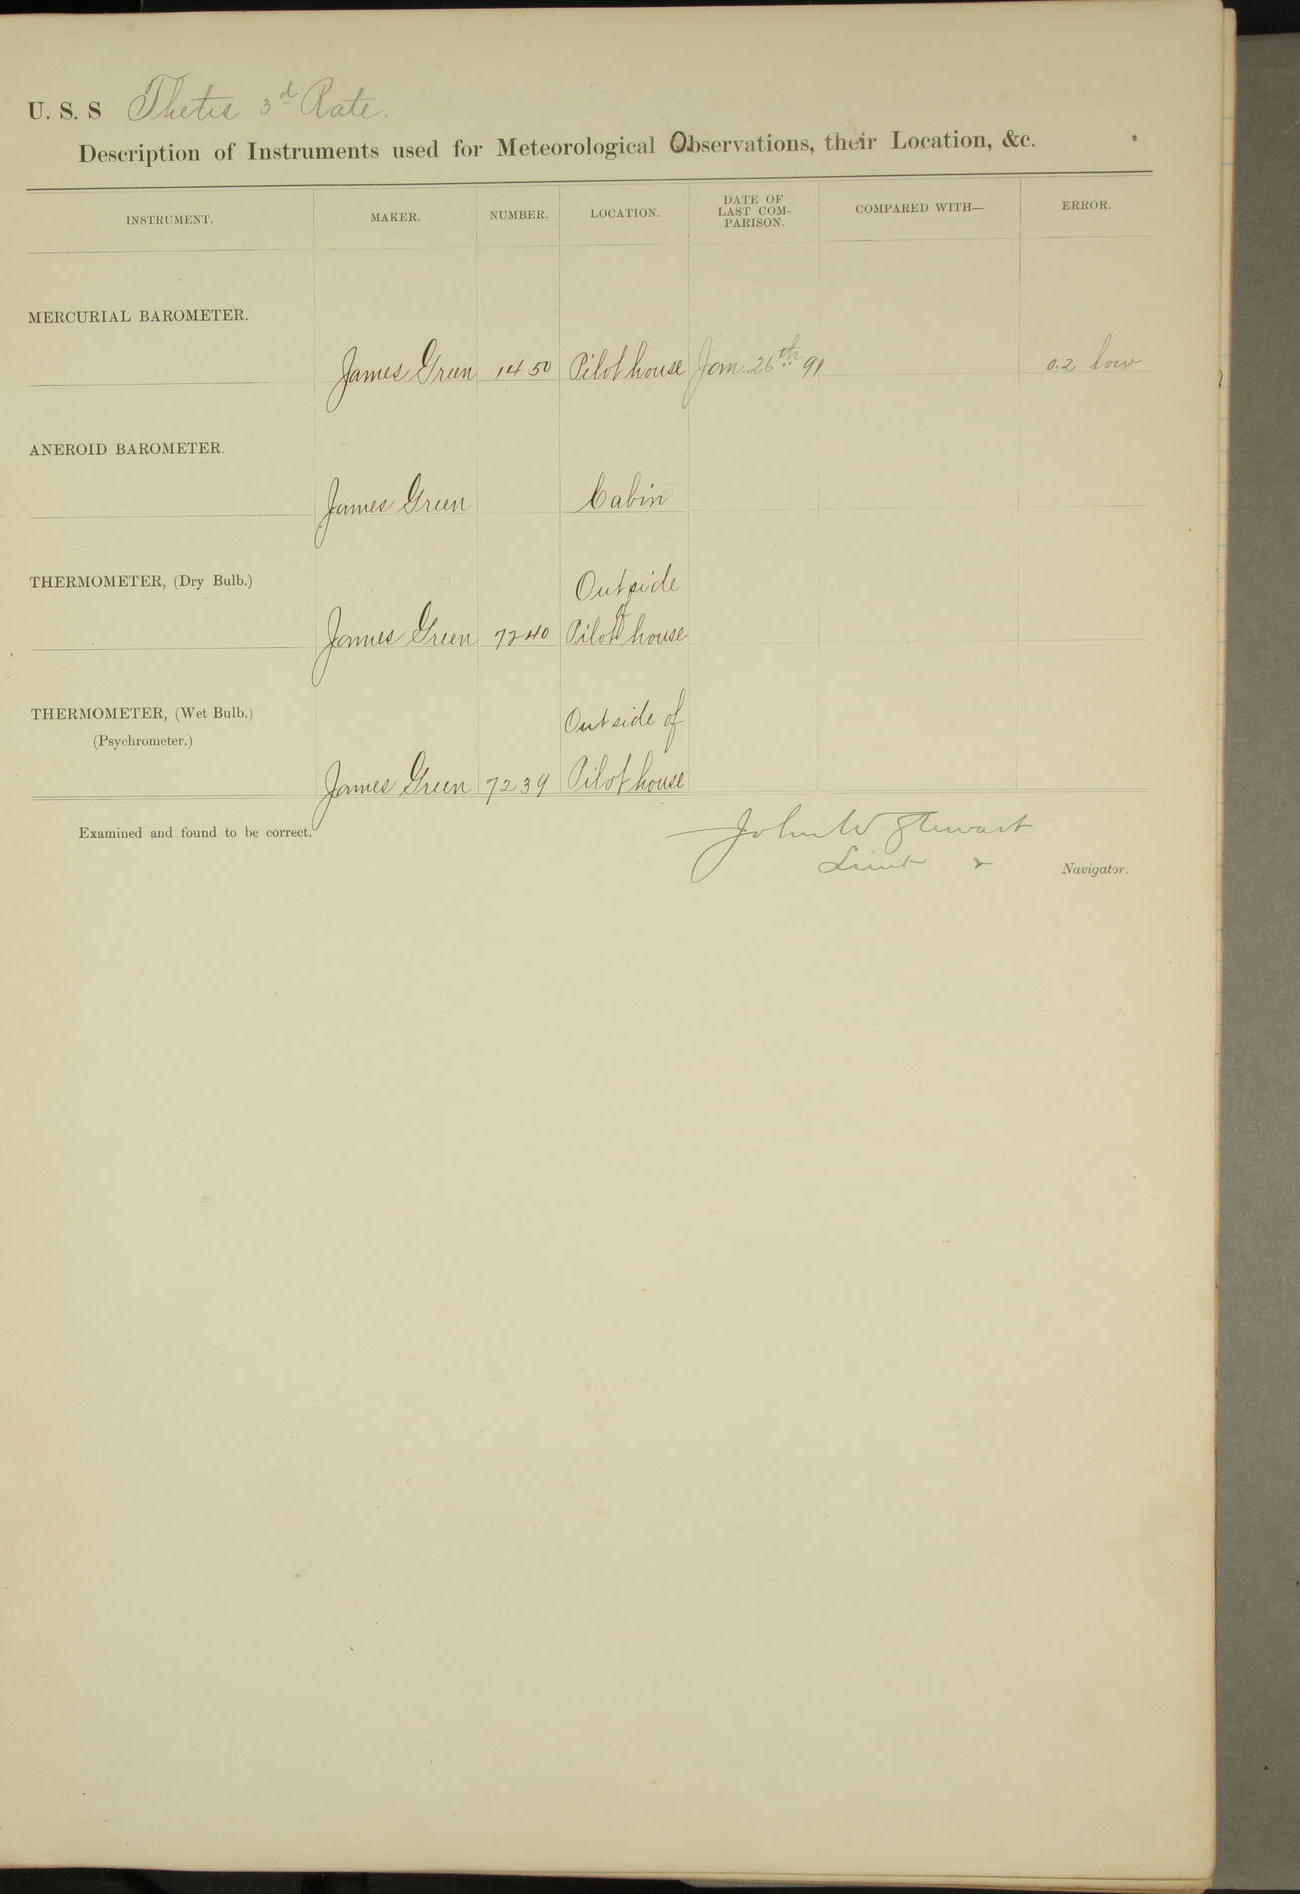 U. S. S Thetis 3d Rate.
Description of Instruments used for Meteorological Observations, their Location, &c.
INSTRUMENT. MAKER. NUMBER. LOCATION. DATE OF LAST COM-PARISON. COMPARED WITH— ERROR.
MERCURIAL BAROMETER.
James Green 1450 Pilot house Jan. 26th 91 0.2 low
ANEROID BAROMETER.
James Green Cabin
THERMOMETER, (Dry Bulb.) Outside
of
James Green 7240 Pilot house
THERMOMETER, (Wet Bulb.) Outside of
(Psychrometer.)
James Green 7239 Pilot house
Examined and found to be correct. John W Stewart
Lieut & Navigator.